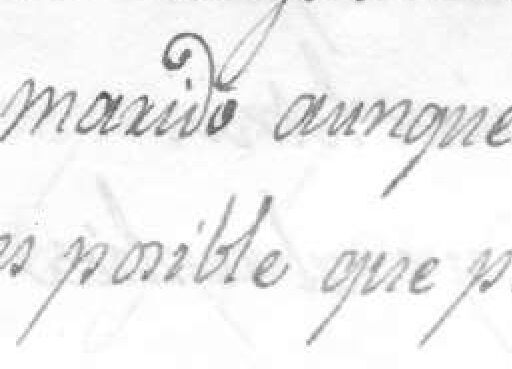 marido aunque
es posible que p